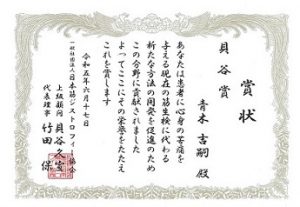 賞状
貝谷賞
青木吉嗣 殿
あなたは患者に心身の苦痛を
与える現在の筋生検に代わる
新たな方法の開発を促進のため
この分野に貢献されました
よってここにその栄誉をたたえ
これを賞します
令和五年六月十七日
一般社団法人日本筋ジストロフィー協会
上級顧問 貝谷久宣
代表理事 竹田 保